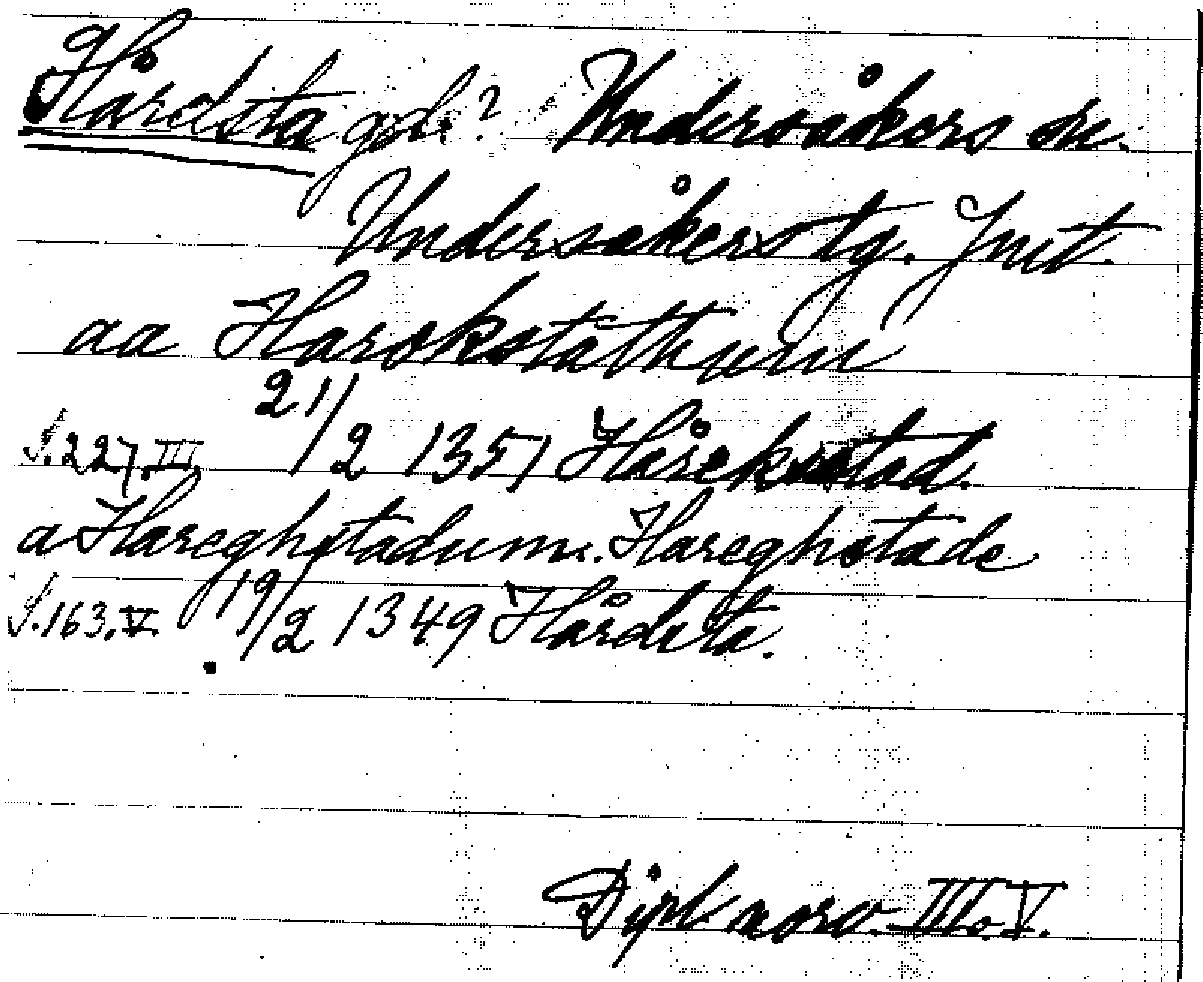 Hårdsta gd.? Undersåkers sn.
Undersåkers tg. Jmt.
aa Harokstathum
S.227.III. 21/2 1351 Hårekstad.
a Hareghstadum. Hareghstade
S.163.V. 19/2 1349 Hårdsta.
Dipl norv. III o. V.